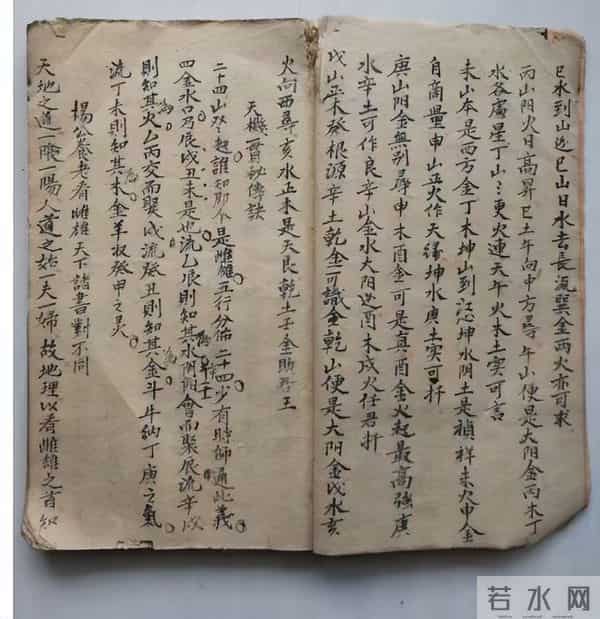 巳水到山边巳山日水去長流巽金丙火亦可求
丙山阳火日高昇巳土午向中方尋午山便是大阳金丙木丁
水谷房星丁山更火連天午火木土实可言
未山本是西方金丁木坤山到心坤水阴土是禎祥未火申金
自商量申山正火作天禄坤水庚土实可扦
庚山阳金無别尋申木酉金可是真酉金火起最高強庚
水辛土可作良辛山金水大阳边酉木戍火任君扦
戍山正木發根源辛土乾金可識全乾山便是大阳金戍水亥
火向西尋亥水正未是天良乾土壬金助君王
天機寶秘傳訣
二十四山双起誰知即个是雌雄五行分佈二十四少有時師通此義
四金水口乃辰戍丑未是也流乙辰則知其水阴阳會而聚辰流辛戍
則知其火乙丙交而聚戍流癸丑則知其金斗牛納丁庚之氣
流丁未則知其木金羊收癸甲之灵
楊公養老看雌雄天下諸書對不同
天地之道一陰一陽人道之始一夫一婦故地理以看雌雄之首知
若水网